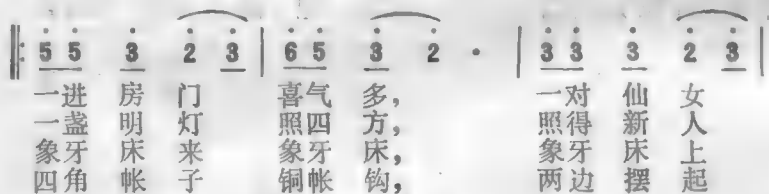 5 5 3 2 3 | 6 5 3 2 · | 3 3 3 2 3
一进 房 门 喜气 多， 一对 仙 女
一盏 明 灯 照四 方， 照得 新 人
象牙 床 来 象牙 床， 象牙 床 上
四角 帐 子 铜帐 钩， 两边 摆 起